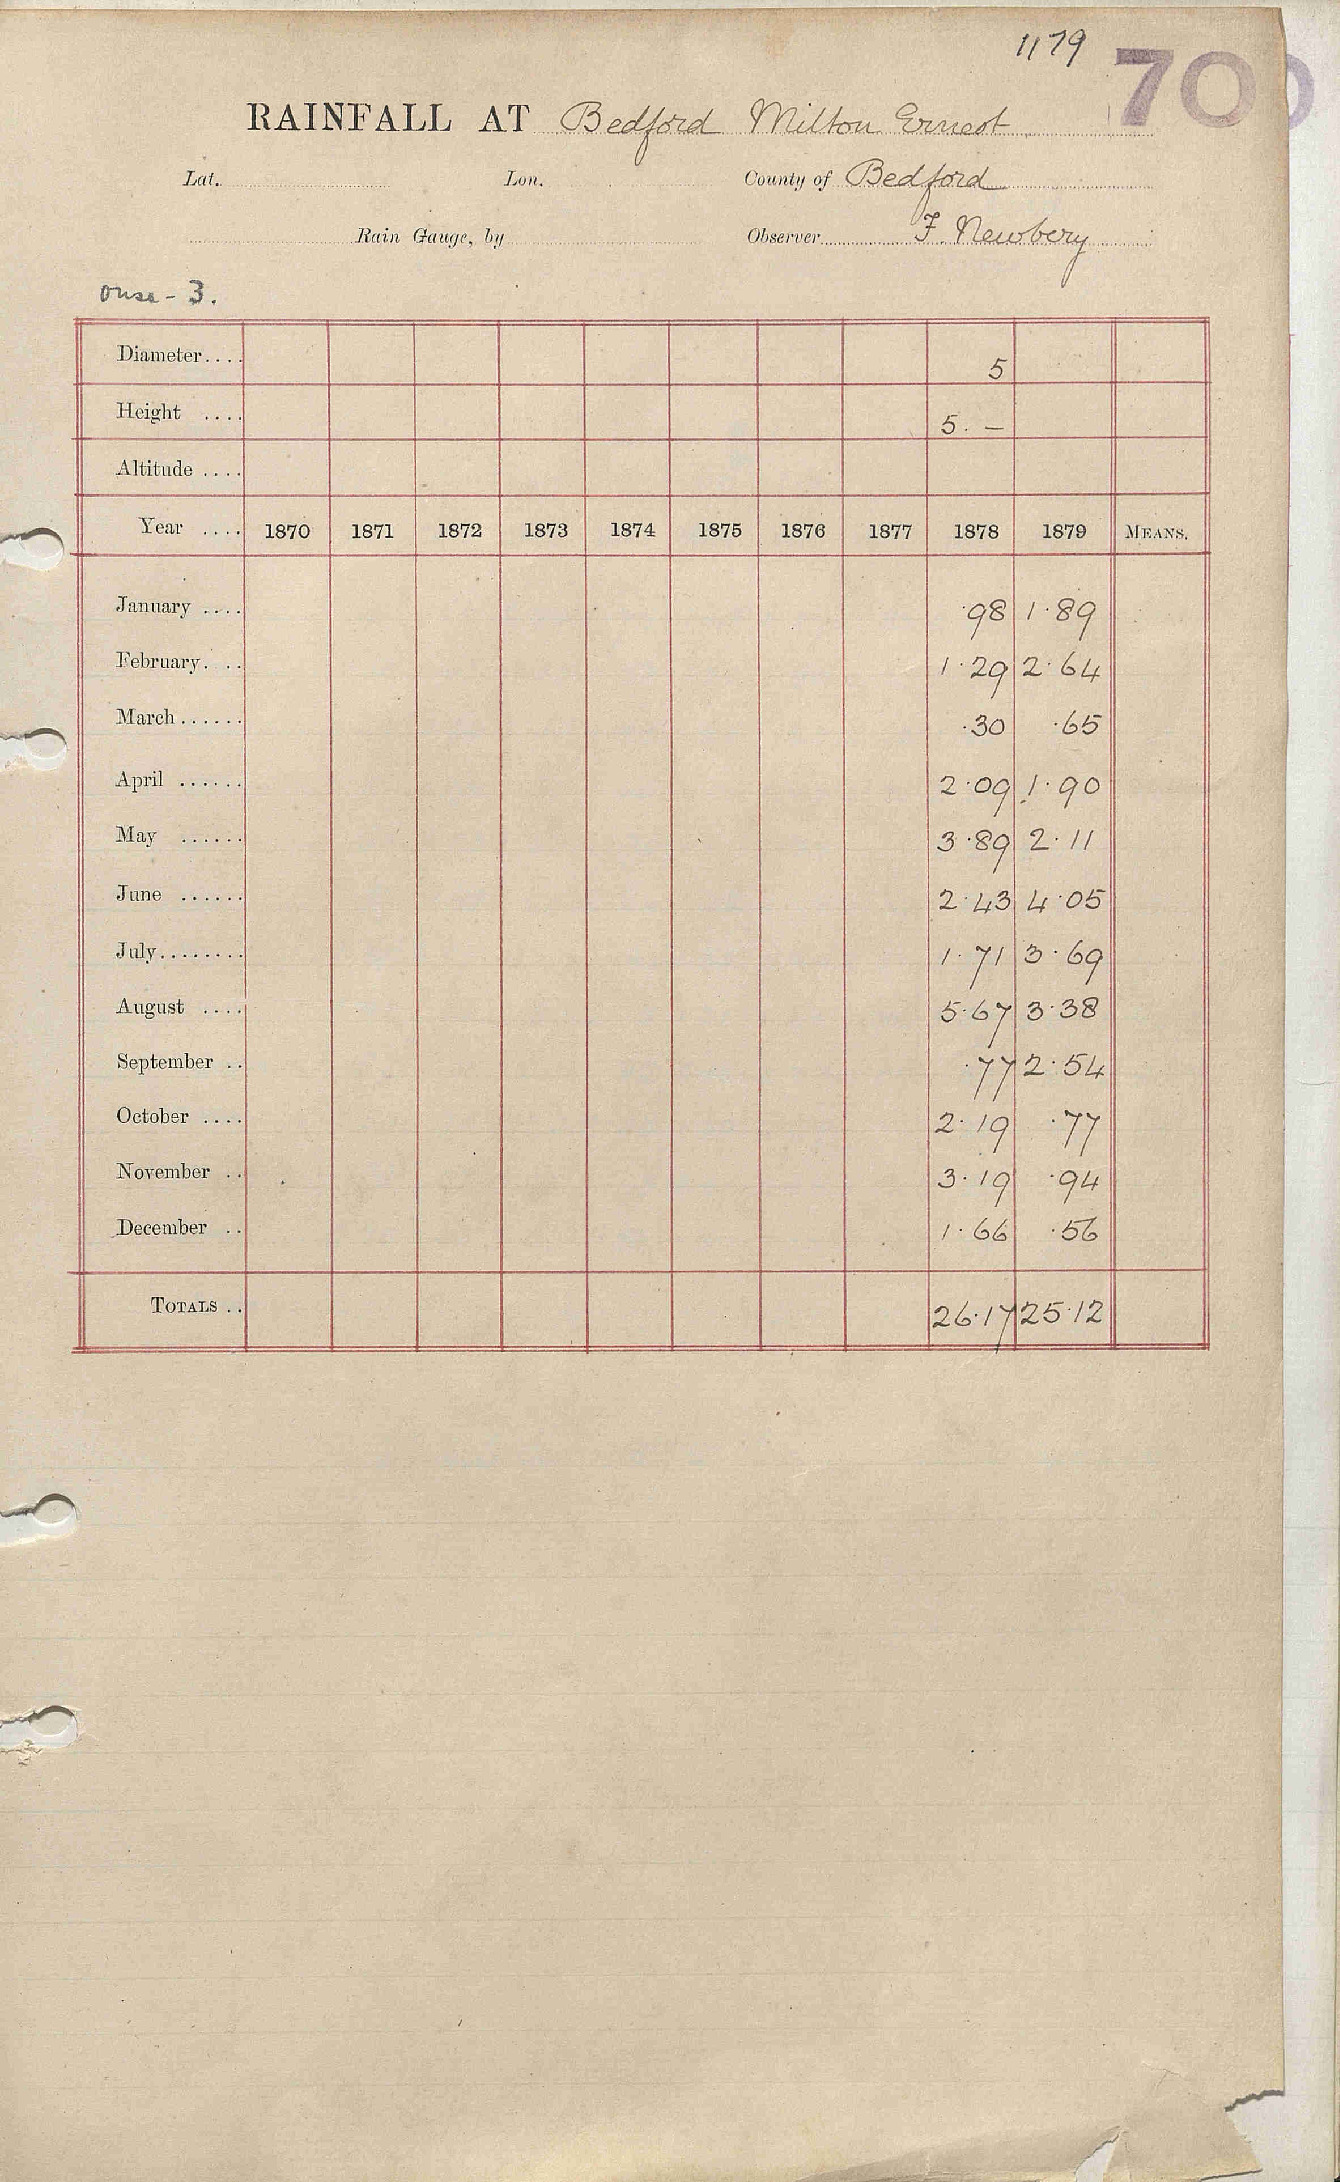 1179 700
RAINFALL AT Bedford Milton Ernest
Lat. Lon. County of Bedford
Rain Gauge, by Observer F. Newbery
Ouse - 3.
Diameter.... 5
Height .... 5. —
Altitude ....
Year .... 1870 1871 1872 1873 1874 1875 1876 1877 1878 1879 MEANS.
January .... .98 1.89
February. .. 1.29 2.64
March...... .30 .65
April ...... 2.09 1.90
May ...... 3.89 2.11
June ...... 2.43 4.05
July........ 1.71 3.69
August .... 5.67 3.38
September .. .77 2.54
October .... 2.19 .77
November .. 3.19 .94
December .. 1.66 .56
TOTALS .. 26.17 25.12